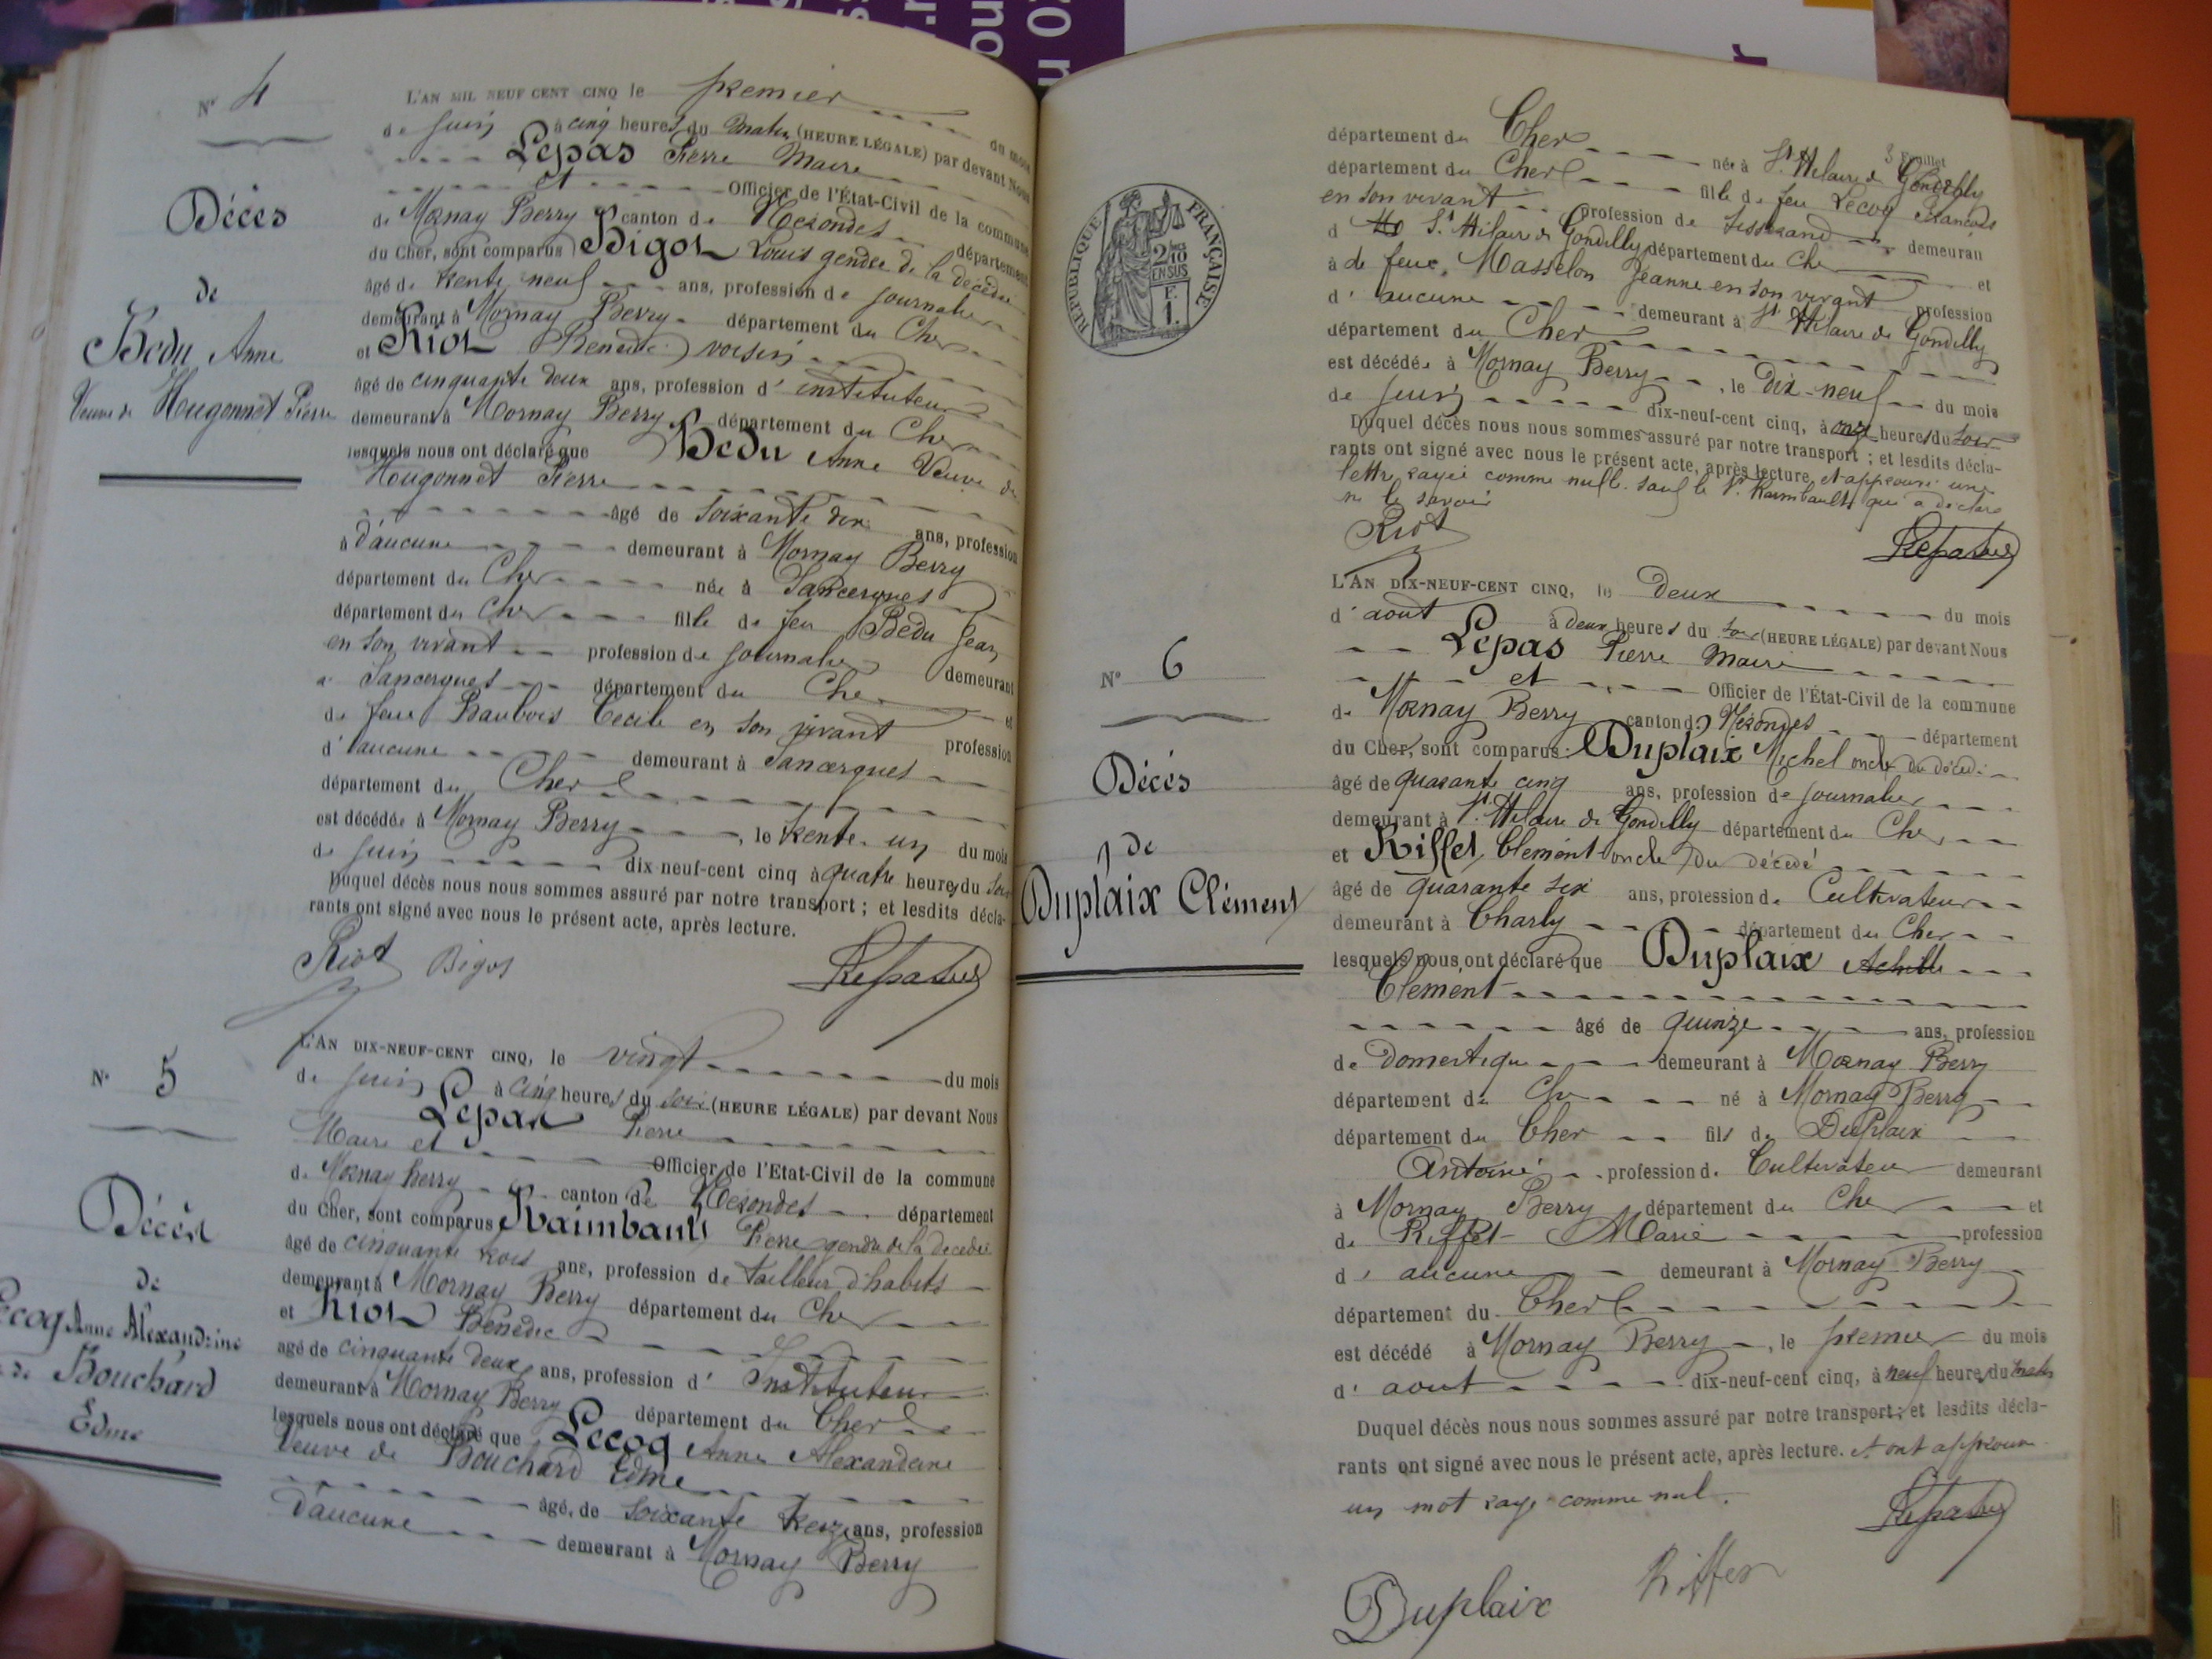 N° 4
Décès
de
Bedu Anne
Veuve de Hugonnet Pierre
L'AN MIL NEUF CENT CINQ le premier du mois
de juin à cinq heures du matin (HEURE LÉGALE) par devant Nous
Lepas Pierre Maire
et Officier de l'État-Civil de la commune
de Mornay Berry canton de Nérondes département
du Cher, sont comparus Bigot Louis gendre de la décédée
âgé de trente neuf ans, profession de journalier
demeurant à Mornay Berry département du Cher
et Riot Benedic voisin
âgé de cinquante deux ans, profession d'instituteur
demeurant à Mornay Berry département du Cher
lesquels nous ont déclaré que Bedu Anne Veuve de
Hugonnet Pierre
âgé de soixante dix ans, profession
d'aucune demeurant à Mornay Berry
département du Cher née à Sancergues
département du Cher fille de feu Bedu Jean
en son vivant profession de journalier demeurant
à Sancergues département du Cher et
de feue Baubois Cecile en son vivant profession
d'aucune demeurant à Sancergues
département du Cher
est décédée à Mornay Berry, le trente-un du mois
de juin dix neuf-cent cinq à quatre heures du soir
Duquel décès nous nous sommes assuré par notre transport ; et lesdits décla-
rants ont signé avec nous le présent acte, après lecture.
Riot Bigot
N° 5
Décès
de
Lecoq Anne Alexandrine
de Bouchard
Edme
L'AN DIX-NEUF-CENT CINQ, le vingt du mois
de juin à cinq heures du soir (HEURE LÉGALE) par devant Nous
Lepas Pierre
Maire et
Officier de l'Etat-Civil de la commune
de Mornay Berry canton de Nérondes département
du Cher, sont comparus Raimbault Pierre gendre de la decedée
âgé de cinquante trois ans, profession de tailleur d'habits
demeurant à Mornay Berry département du Cher
et Riot Benedic
agé de cinquante deux ans, profession d'Instituteur
demeurant à Mornay Berry département du Cher
lesquels nous ont déclaré que Lecoq Anne Alexandrine
Veuve de Bouchard Edme
âgé, de soixante treize ans, profession
d'aucune demeurant à Mornay Berry
3 Feuillet
département du Cher née à St. Hilaire de Gondilly
département du Cher fille de feu Lecoq François
en son vivant profession de tisserand demeuran
d St. Hilaire de Gondilly département du Cher et
à de feue, Masselon Jeanne en son vivant profession
d'aucune demeurant à St. Hilaire de Gondilly
département du Cher
est décédée à Mornay Berry, le Dix-neuf du mois
de juin dix-neuf-cent cinq, à onze heures du soir
Duquel décès nous nous sommes assuré par notre transport ; et lesdits décla-
rants ont signé avec nous le présent acte, après lecture et approuvé une
lettre rayée comme nulle. sauf le Sr. Raimbault qui a déclaré
ne le savoir
Riot
RÉPUBLIQUE FRANÇAISE
2/10
EN SUS
F.
1.
N° 6
Décès
de
Duplaix Clément
L'AN DIX-NEUF-CENT CINQ, le Deux du mois
d'aout à deux heures du soir (HEURE LÉGALE) par devant Nous
Lepas Pierre Maire
et Officier de l'État-Civil de la commune
de Mornay Berry canton de Nérondes département
du Cher, sont comparus: Duplaix Michel oncle du décédé
âgé de quarante cinq ans, profession de journalier
demeurant à St. Hilaire de Gondilly département du Cher
et Riffet Clément oncle du décédé
âgé de quarante six ans, profession de Cultivateur
demeurant à Charly département du Cher
lesquels nous ont déclaré que Duplaix Achille
Clément
âgé de quinze ans, profession
de Domestique demeurant à Mornay Berry
département du Cher né à Mornay Berry
département du Cher fils de Duplaix
Antoine profession de Cultivateur demeurant
à Mornay Berry département du Cher et
de Riffet Marie profession
d'aucune demeurant à Mornay Berry
département du Cher
est décédé à Mornay Berry, le premier du mois
d'aout dix-neuf-cent cinq, à neuf heures du matin
Duquel décès nous nous sommes assuré par notre transport ; et lesdits décla-
rants ont signé avec nous le présent acte, après lecture. et ont approuvé
un mot rayé comme nul.
Duplaix Riffet